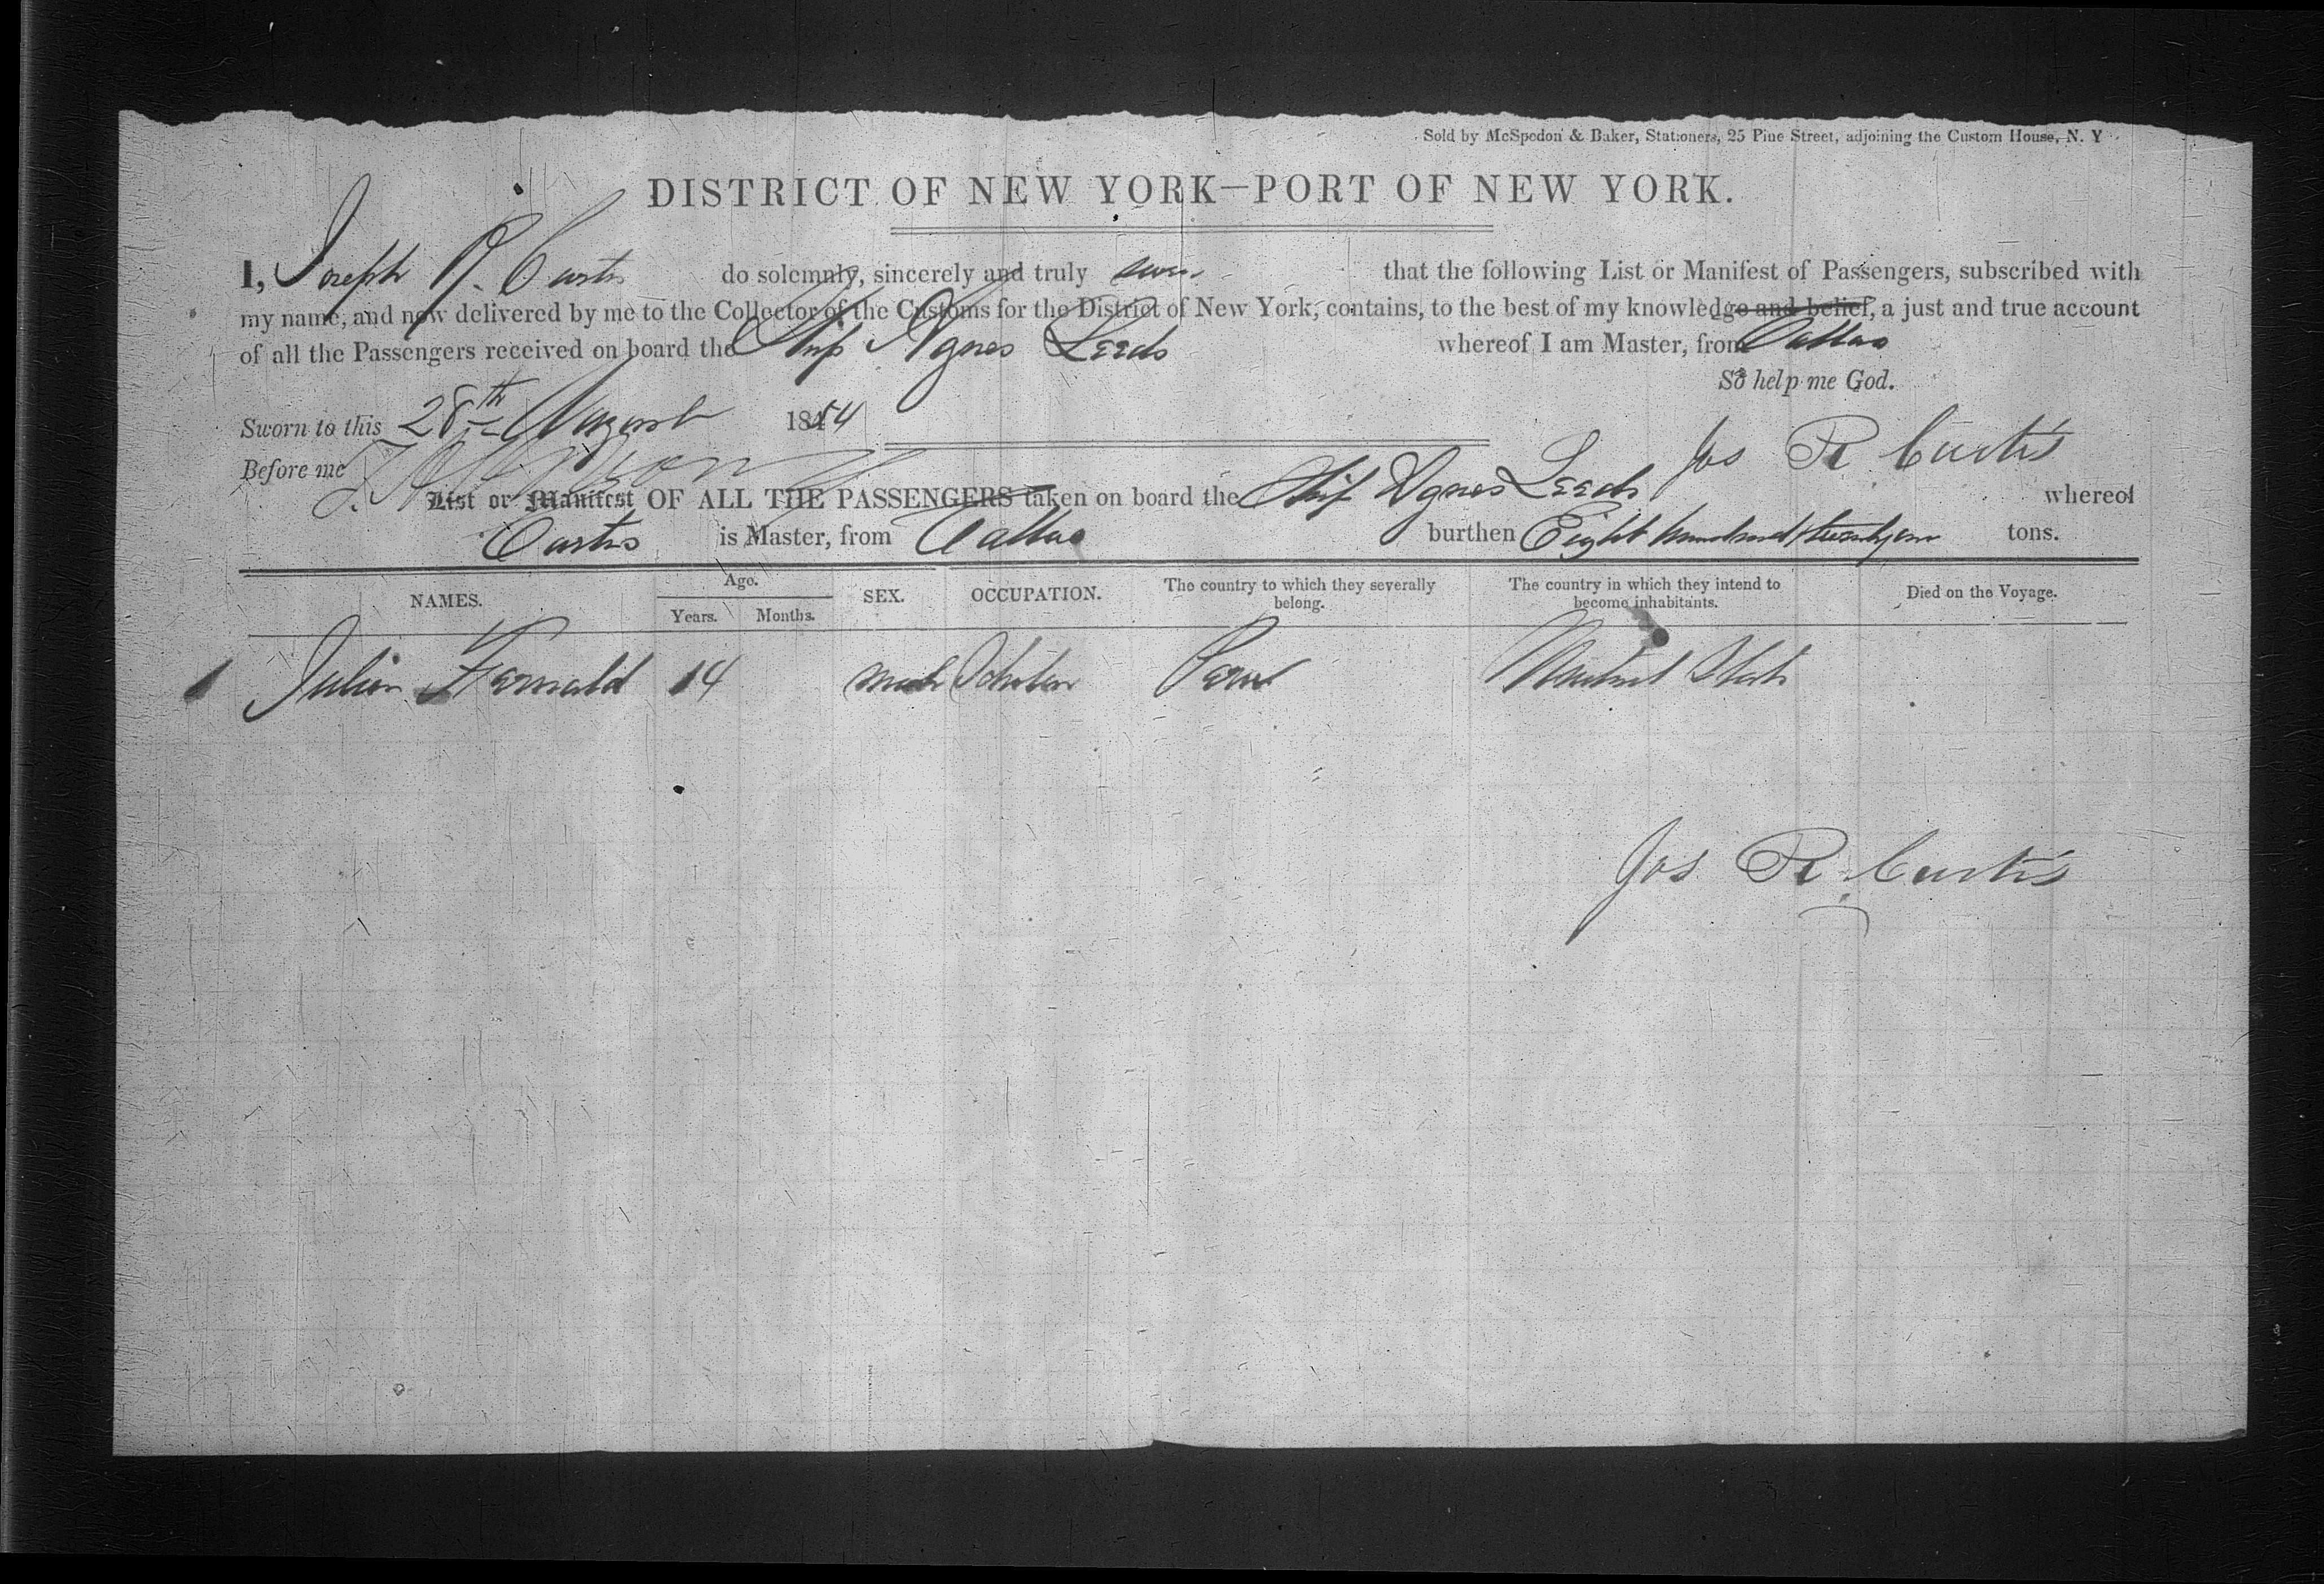 Sold by McSpedon & Baker, Stationers, 25 Pine Street, adjoining the Custom House, N. Y
DISTRICT OF NEW YORK—PORT OF NEW YORK.
I, Joseph R. Curtis do solemnly, sincerely and truly that the following List or Manifest of Passengers, subscribed with
my name, and now delivered by me to the Collector of the Customs for the District of New York, contains, to the best of my knowledge and belief, a just and true account
of all the Passengers received on board the Ship Agnes Leeds whereof I am Master, from Callao
So help me God.
Sworn to this 28th August 1854
Jos R Curtis
Before me
List or Manifest OF ALL THE PASSENGERS taken on board the Ship Agnes Leeds whereof
Curtis is Master, from Callao burthen Eight hundred tons.
NAMES. Age. Years. Months. SEX. OCCUPATION. The country to which they severally belong. The country in which they intend to become inhabitants. Died on the Voyage.
1 Julian 14 male Scholar Peru United States
Jos R Curtis